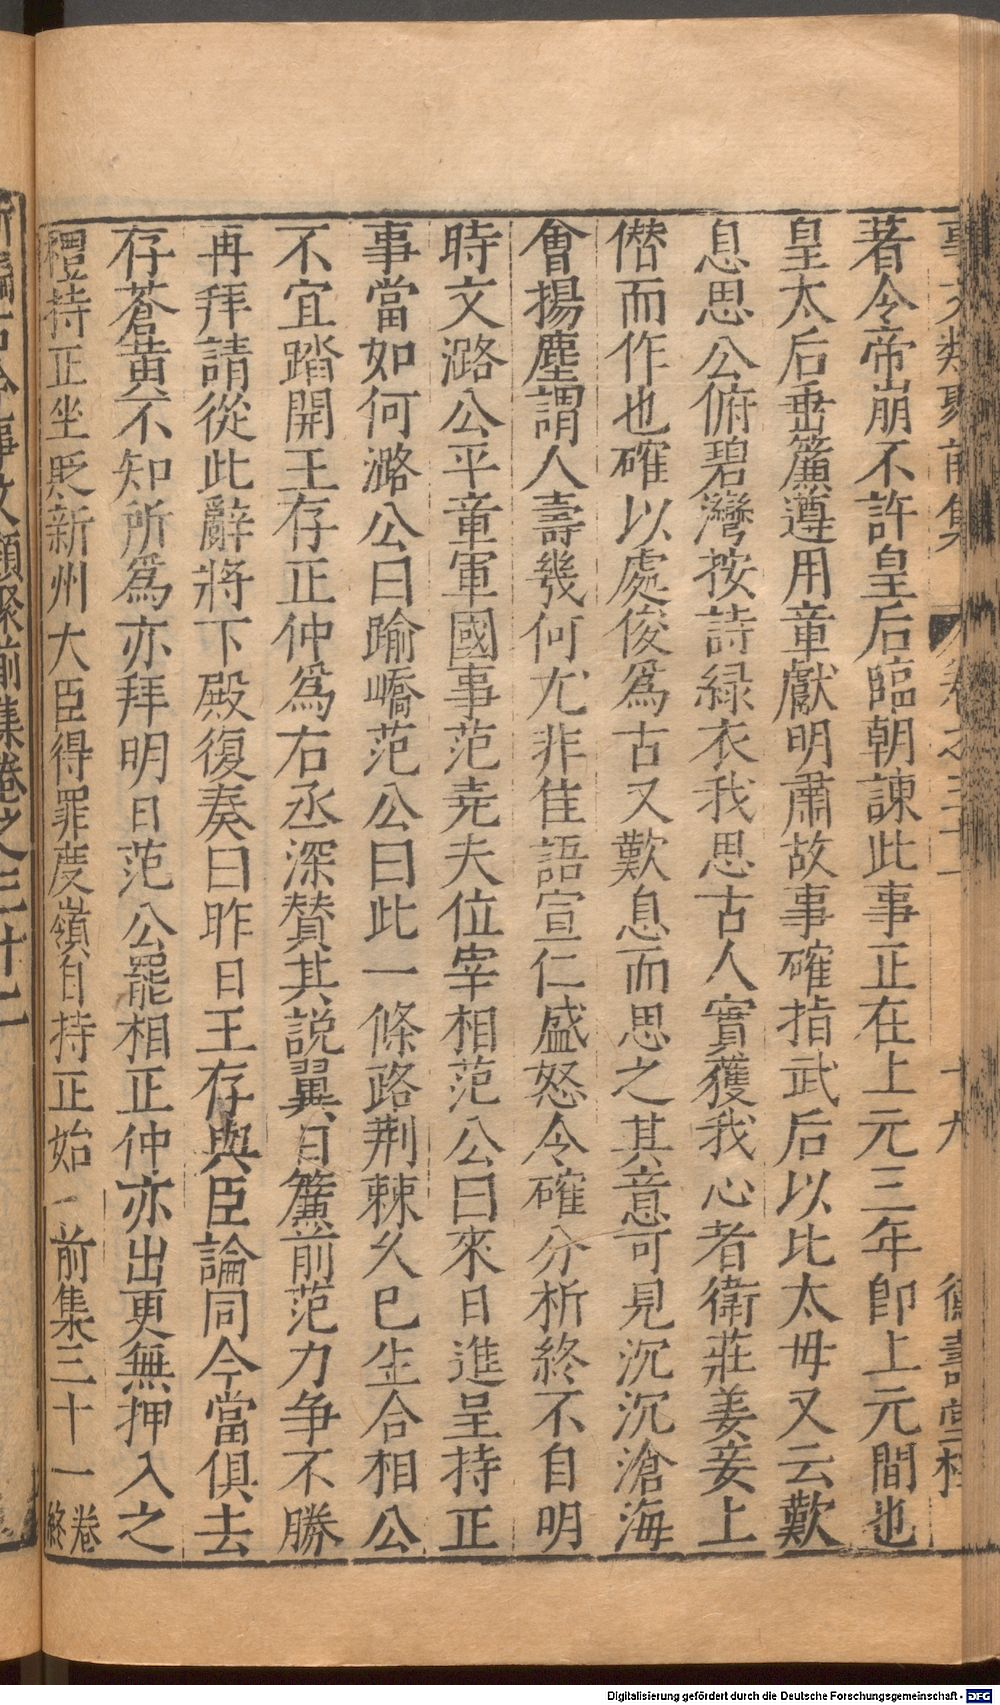 事文類聚前集　卷之三十一　十九　德壽堂梓
著令帝崩不許皇后臨朝諫此事正在上元三年卽上元間也
皇太后垂簾遵用章獻明肅故事確指武后以比太母又云歎
息思公俯碧灣按詩綠衣我思古人實獲我心者衛莊姜妾上
僭而作也確以處俊爲古又歎息而思之其意可見沉沉滄海
會揚塵謂人壽幾何尤非佳語宣仁盛怒令確分析終不自明
時文潞公平章軍國事范堯夫位宰相范公曰來日進呈持正
事當如何潞公曰踰嶠范公曰此一條路荆棘久已生合相公
不宜踏開王存正仲爲右丞深賛其説翼日簾前范力争不勝
再拜請從此辭將下殿復奏曰昨日王存與臣論同今當俱去
存蒼黃不知所爲亦拜明日范公罷相正仲亦出更無押入之
禮持正坐貶新州大臣得罪度嶺自持正始　前集三十一卷終
新編古今事文類聚前集卷之三十二
Digitalisierung gefördert durch die Deutsche Forschungsgemeinschaft - DFG